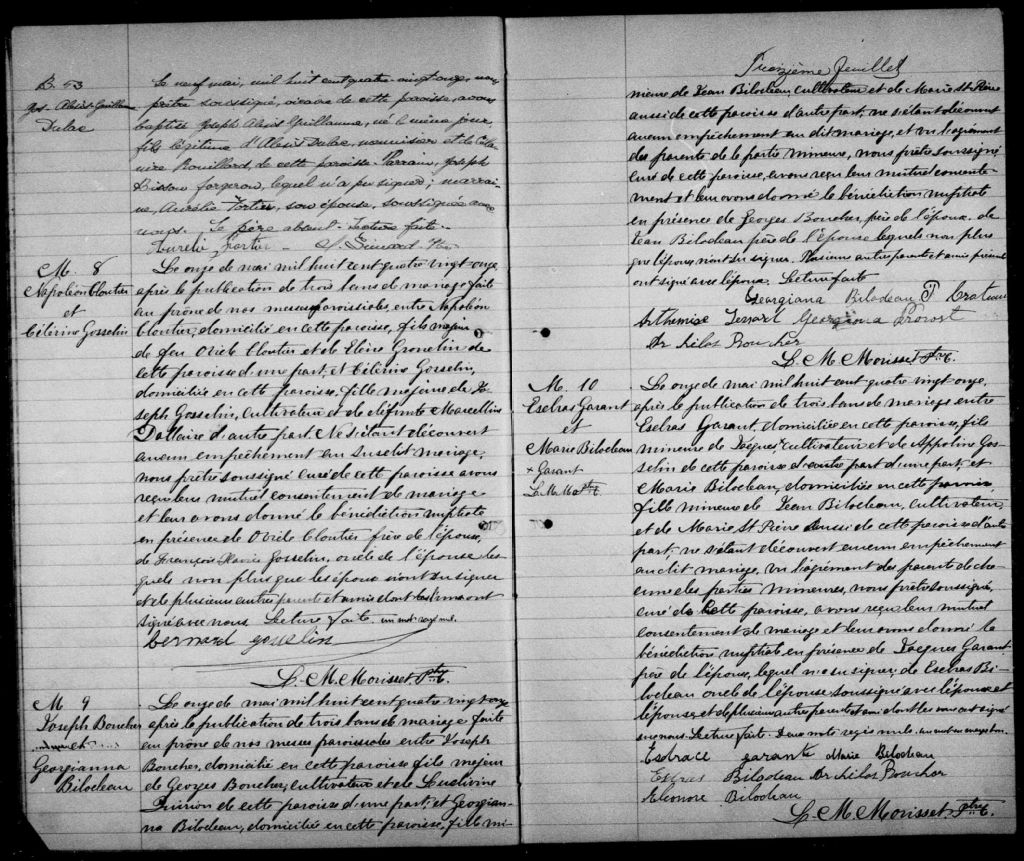 B. 53
Jos. Alexis Guillaume
Dulac
Le neuf mai, mil huit cent quatre-vingt onze, nous
prêtre soussigné, vicaire de cette paroisse, avons
baptisé Joseph Alexis Guillaume, né le même jour,
fils légitime d'Alexis Dulac, menuisier et de
Rouillard, de cette paroisse. Parrain, Joseph
forgeron, lequel n'a pu signer; marrai-
ne, Aurélie Fortier, son épouse, soussignée avec
nous. Le père absent. Lecture faite.
Aurélie Fortier
M. 8
Napoléon Cloutier
et
Célérine Gosselin
Le onze de mai mil huit cent quatre vingt onze
après la publication de trois bans de mariage faite
au prône de nos messes paroissiales, entre Napoléon
Cloutier, domicilié en cette paroisse, fils majeur
de feu Ovide Cloutier et de
cette paroisse d'une part, et Célérine Gosselin,
domiciliée en cette paroisse, fille majeure de Jo-
seph Gosselin, cultivateur et de défunte Marcelline
Dallaire d'autre part. Ne s'étant découvert
aucun empêchement au susdit mariage,
nous prêtre soussigné curé de cette paroisse avons
reçu leur mutuel consentement de mariage
et leur avons donné la bénédiction nuptiale
en présence de Ovide Cloutier frère de l'époux,
de François Gosselin, oncle de l'épouse les-
quels non plus que les époux n'ont su signer
et de plusieurs autres parents et amis dont
signé avec nous. Lecture faite. un mot rayé nul.
bernard gosselin
L. M. Morisset Ptre C.
M 9
Joseph Boucher
et
Georgianna
Bilodeau
Le onze de mai mil huit cent quatre vingt onze
après la publication de trois bans de mariage faite
au prône de nos messes paroissiales entre Joseph
Boucher, domicilié en cette paroisse fils majeur
de Georges Boucher, cultivateur et de Ludivine
de cette paroisse d'une part, et Georgian-
na Bilodeau, domiciliée en cette paroisse, fille mi-
Treizième feuillet
neure de Jean Bilodeau, cultivateur et de Marie St Pierre
aussi de cette paroisse d'autre part, ne s'étant découvert
aucun empêchement au dit mariage, et vu l'agrément
des parents de la partie mineure, nous prêtre soussigné,
curé de cette paroisse, avons reçu leur mutuel consente-
ment et leur avons donné la bénédiction nuptiale
en présence de Georges Boucher, père de l'époux, de
Jean Bilodeau père de l'épouse lesquels non plus
que l'époux n'ont su signer. Plusieurs autres parents et amis présents
ont signé avec l'épouse. Lecture faite
Georgiana Bilodeau
Arthemise Georgiana Provost
L. M. Morisset Ptre C.
M. 10
Esdras Garant
et
Marie Bilodeau
x Garant
L. M. M. Ptre C.
Le onze de mai mil huit cent quatre vingt onze,
après la publication de trois bans de mariage entre
Esdras Garant, domicilié en cette paroisse, fils
mineur de Jacques, cultivateur et de Appoline Gos-
selin de cette paroisse d'autre part d'une part, et
Marie Bilodeau, domiciliée en cette paroisse
fille mineure de Jean Bilodeau, cultivateur,
et de Marie St Pierre aussi de cette paroisse d'autre
part, ne s'étant découvert aucun empêchement
au dit mariage, vu l'agrément des parents de cha-
cune des parties mineures, nous prêtre soussigné,
curé de cette paroisse, avons reçu leur mutuel
consentement de mariage et leur avons donné la
bénédiction nuptiale en présence de Jacques Garant
père de l'époux, lequel n'a su signer, de Esdras Bi-
lodeau oncle de l'épouse, soussigné avec l'époux et
l'épouse, et de plusieurs autres parents et amis dont les uns ont signé
avec nous. Lecture faite. Deux mots rayés nuls.
Esdrace garante Marie Bilodeau
Esdras Bilodeau
Eleonore Bilodeau
L. M. Morisset, Ptre C.